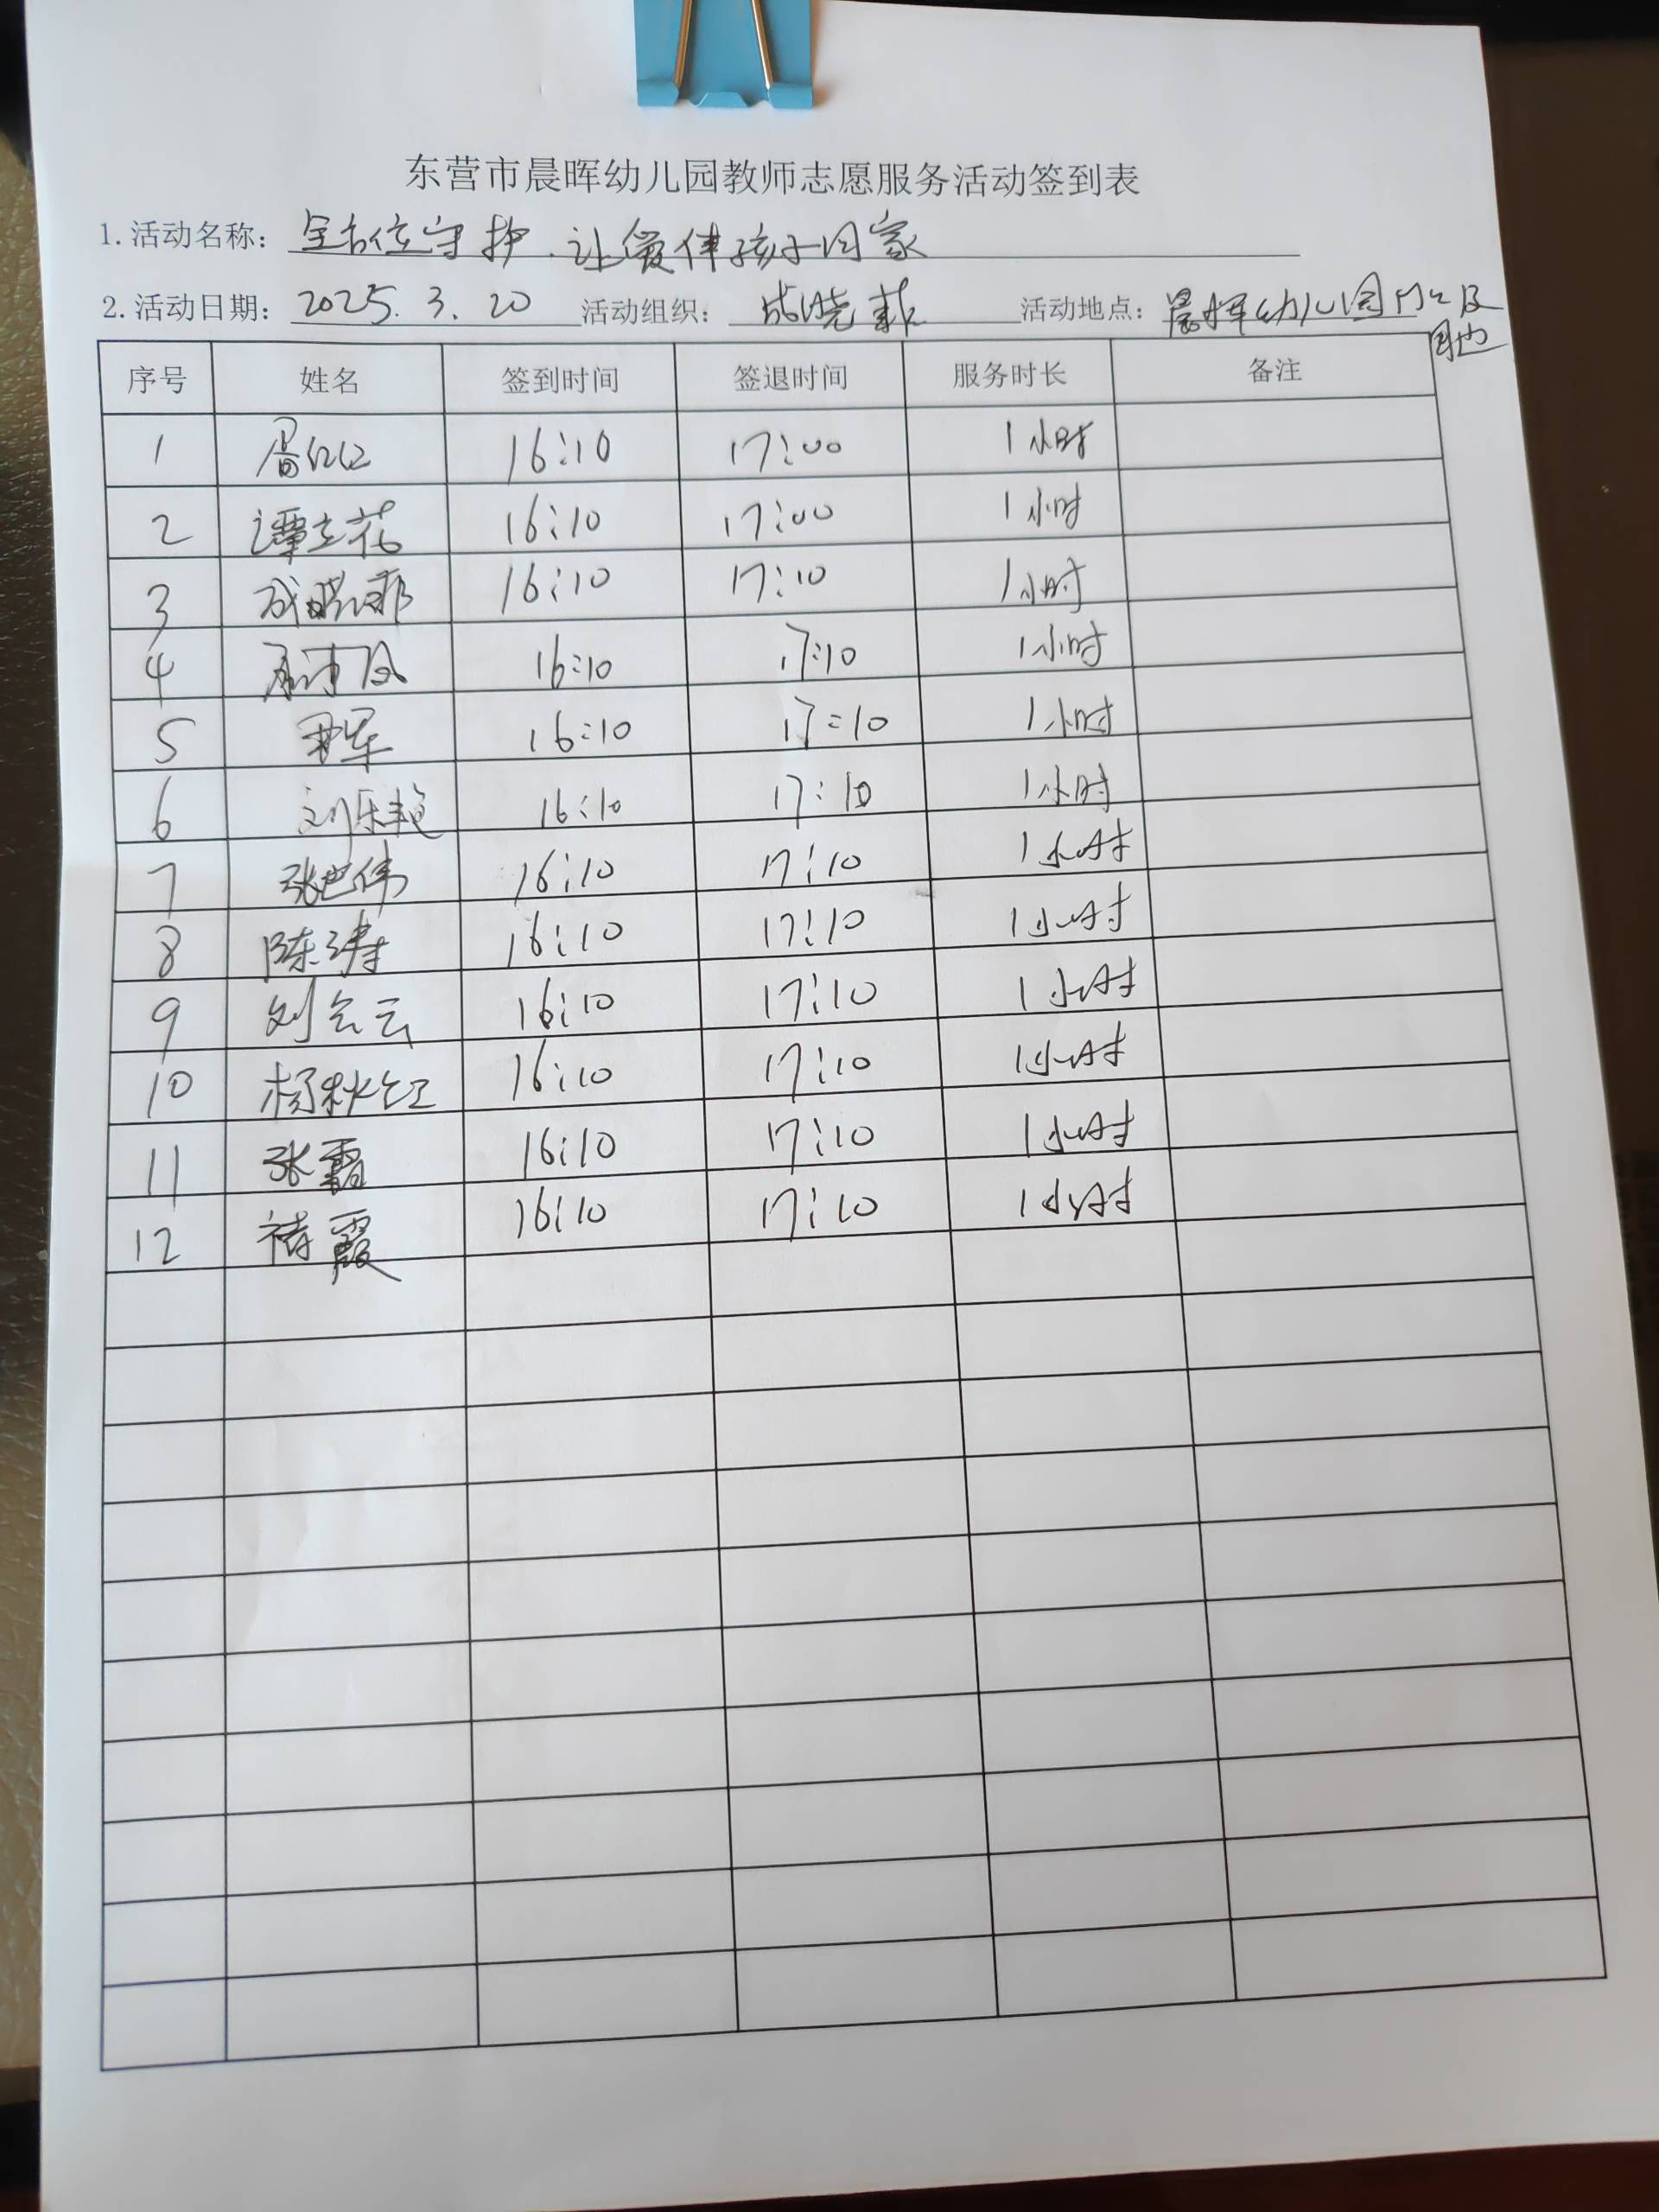 东营市晨晖幼儿园教师志愿服务活动签到表
1.活动名称：全方位守护.让爱伴孩子回家
2.活动日期：2025.3.20 活动组织：成晓菲 活动地点：晨晖幼儿园门口及
周边
序号 姓名 签到时间 签退时间 服务时长 备注
1 16:10 17:00 1小时
2 谭立花 16:10 17:00 1小时
3 成晓菲 16:10 17:10 1小时
4 16:10 17:10 1小时
5 16:10 17:10 1小时
6 刘乐艳 16:10 17:10 1小时
7 张世伟 16:10 17:10 1小时
8 陈涛 16:10 17:10 1小时
9 刘会云 16:10 17:10 1小时
10 杨秋红 16:10 17:10 1小时
11 张霞 16:10 17:10 1小时
12 褚霞 16:10 17:10 1小时